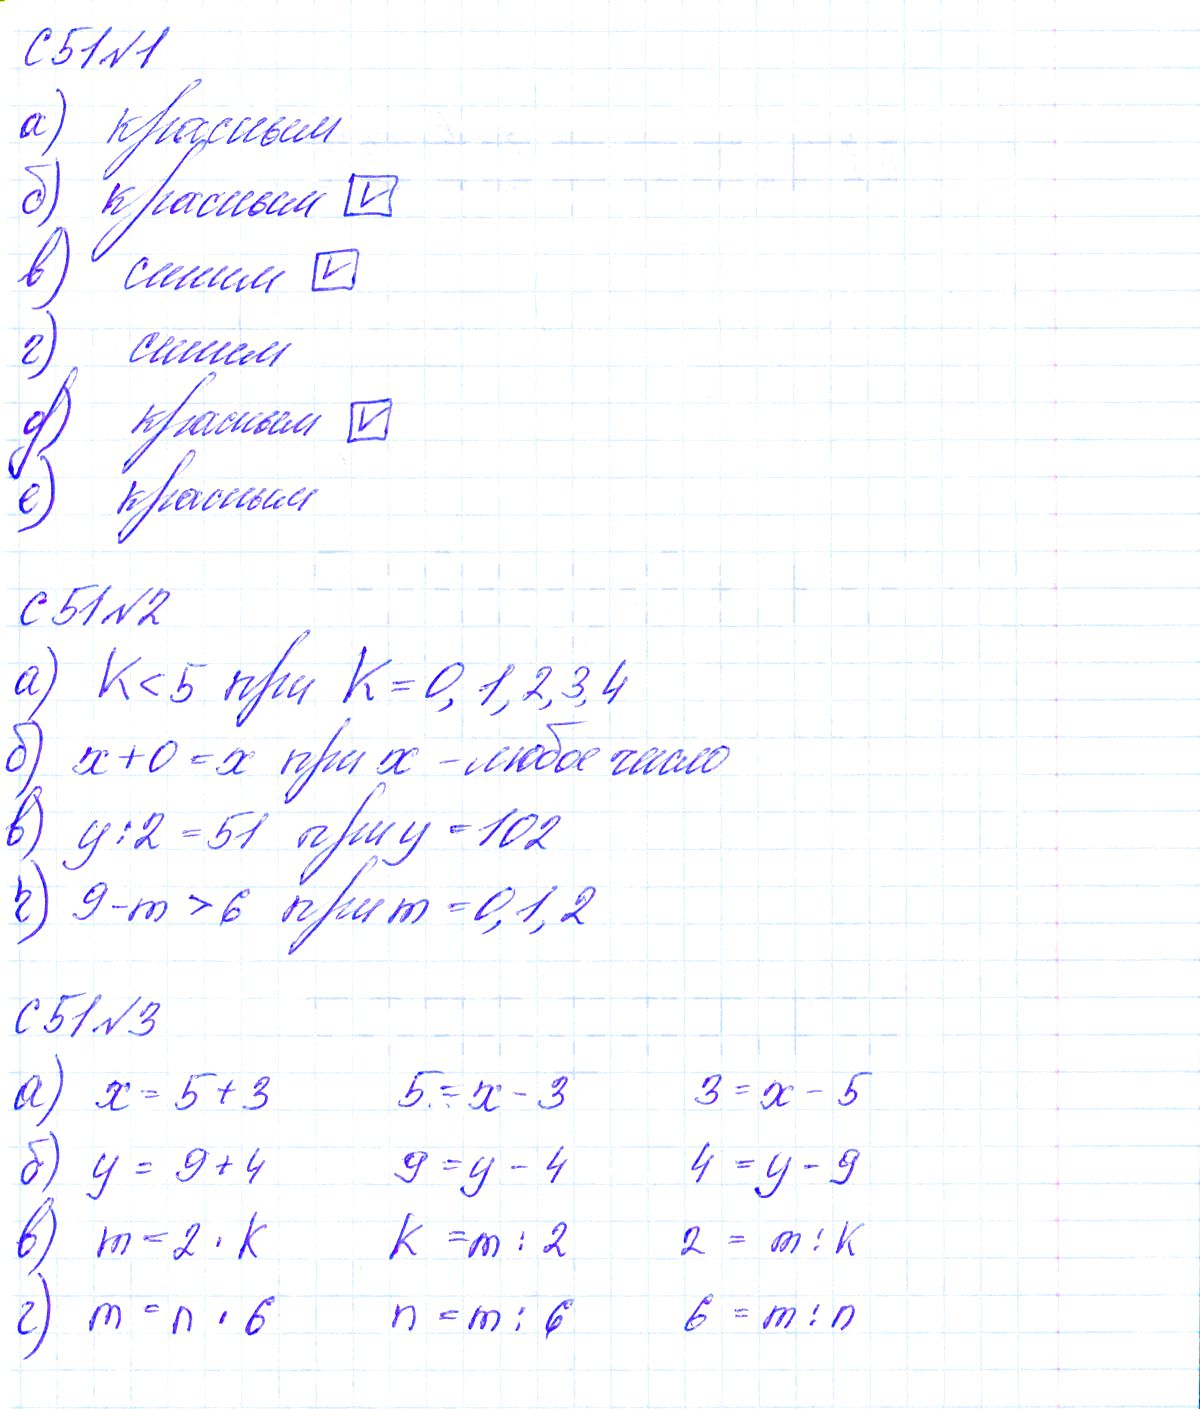 с 51 №1
а) красным
б) красным ☑
в) синим ☑
г) синим
д) красным ☑
е) красным
с 51 №2
а) K < 5 при K = 0, 1, 2, 3, 4
б) x + 0 = x при x - любое число
в) y : 2 = 51 при y = 102
г) 9 - m > 6 при m = 0, 1, 2
с 51 №3
а) x = 5 + 3 5 = x - 3 3 = x - 5
б) y = 9 + 4 9 = y - 4 4 = y - 9
в) m = 2 · k k = m : 2 2 = m : k
г) m = n · 6 n = m : 6 6 = m : n